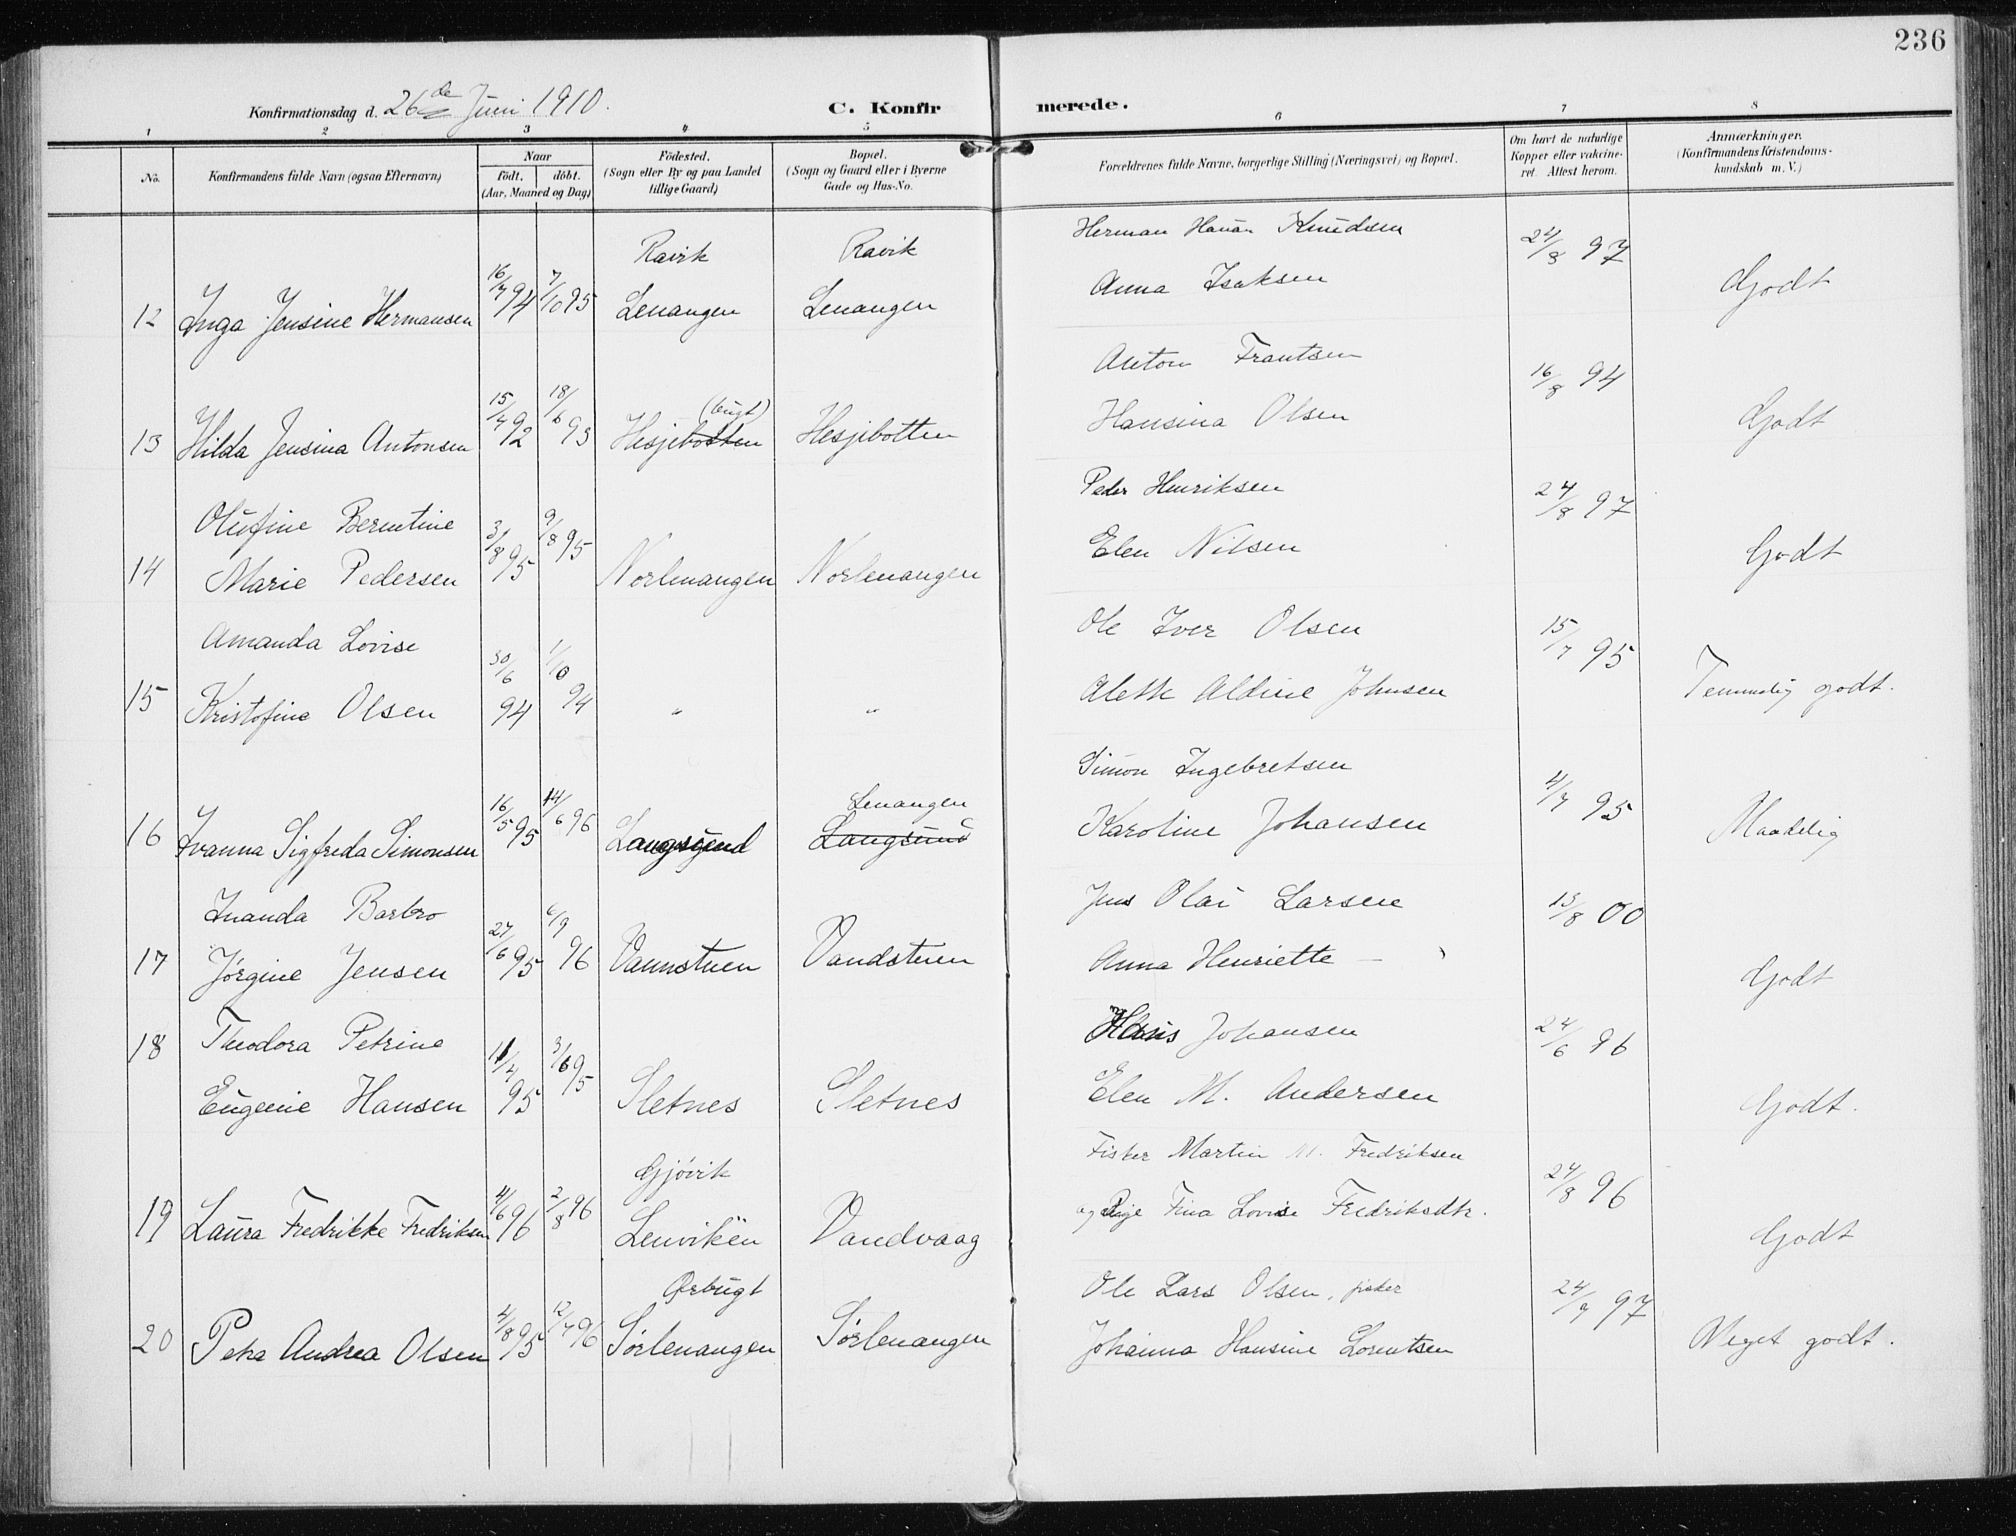 236
Konfirmationsdag d. 26de Juni 1910.
C. Konfirmerede.
1 2 3 4 5 6 7 8
No.
Konfirmandens fulde Navn (ogsaa Efternavn)
Naar
födt. döbt.
(Aar, Maaned og Dag)
Födested.
(Sogn eller By og paa Landet
tillige Gaard)
Bopæl.
(Sogn og Gaard eller i Byerne
Gade og Hus-No.
Forældrenes fulde Navne, borgerlige Stilling (Næringsvei) og Bopæl.
Om havt de naturlige
Kopper eller vakcine-
ret. Attest herom.
Anmærkninger.
(Konfirmandens Kristendoms-
kundskab m. V.)
12 Inga Jensine Hermansen 16/7 94 7/10 95
Ravik
Lenangen
Ravik
Lenangen
Herman Knudsen
Anna Isaksen
24/8 97
Godt
13 Hilda Jensina Antonsen 15/7 92 18/6 93
(bugt)
Hesjebotten
Hesjibotten
Anton Frantsen
Hansina Olsen
16/8 94
Godt
14 Olufine Berntine
Marie Pedersen
3/8 95 9/8 95
Norlenangen
Norlenangen
Peder Henriksen
Elen Nilsen
24/8 97
Godt
15 Amanda Lovise
Kristofine Olsen
30/6 94 1/10 94
"
"
Ole Iver Olsen
Aleth Aldine Johnsen
15/7 95
Temmelig godt.
16 Ivanna Sigfreda Simonsen 16/5 95 14/6 96
Langsund
Lenangen
Langsund
Simon Ingebretsen
Karoline Johansen
4/7 95
Maadelig
17 Inanda Barbro
Jørgine Jensen
27/6 95 6/9 96
Vannstuen
Vandstuen
Jens Olai Larsen
Anna Henriette —
13/8 00
Godt
18 Theodora Petrine
Eugenie Hansen
11/4 95 3/6 95
Sletnes
Sletnes
Hans Johansen
Elen M. Andersen
24/6 96
Godt.
19 Laura Fredrikke Fredriksen 4/6 96 2/8 96
Gjövik
Lenviken
Vandvaag
Fisker Martin M. Fredriksen
og Pige Tina Lovise Fredriksdtr.
24/8 96
Godt
20 Petra Andrea Olsen 4/8 95 12/7 96
Ørbugt
Sörlenangen
Sörlenangen
Ole Lars Olsen, fisker
Johanna Hansine Lorentsen
24/9 97
Meget godt.